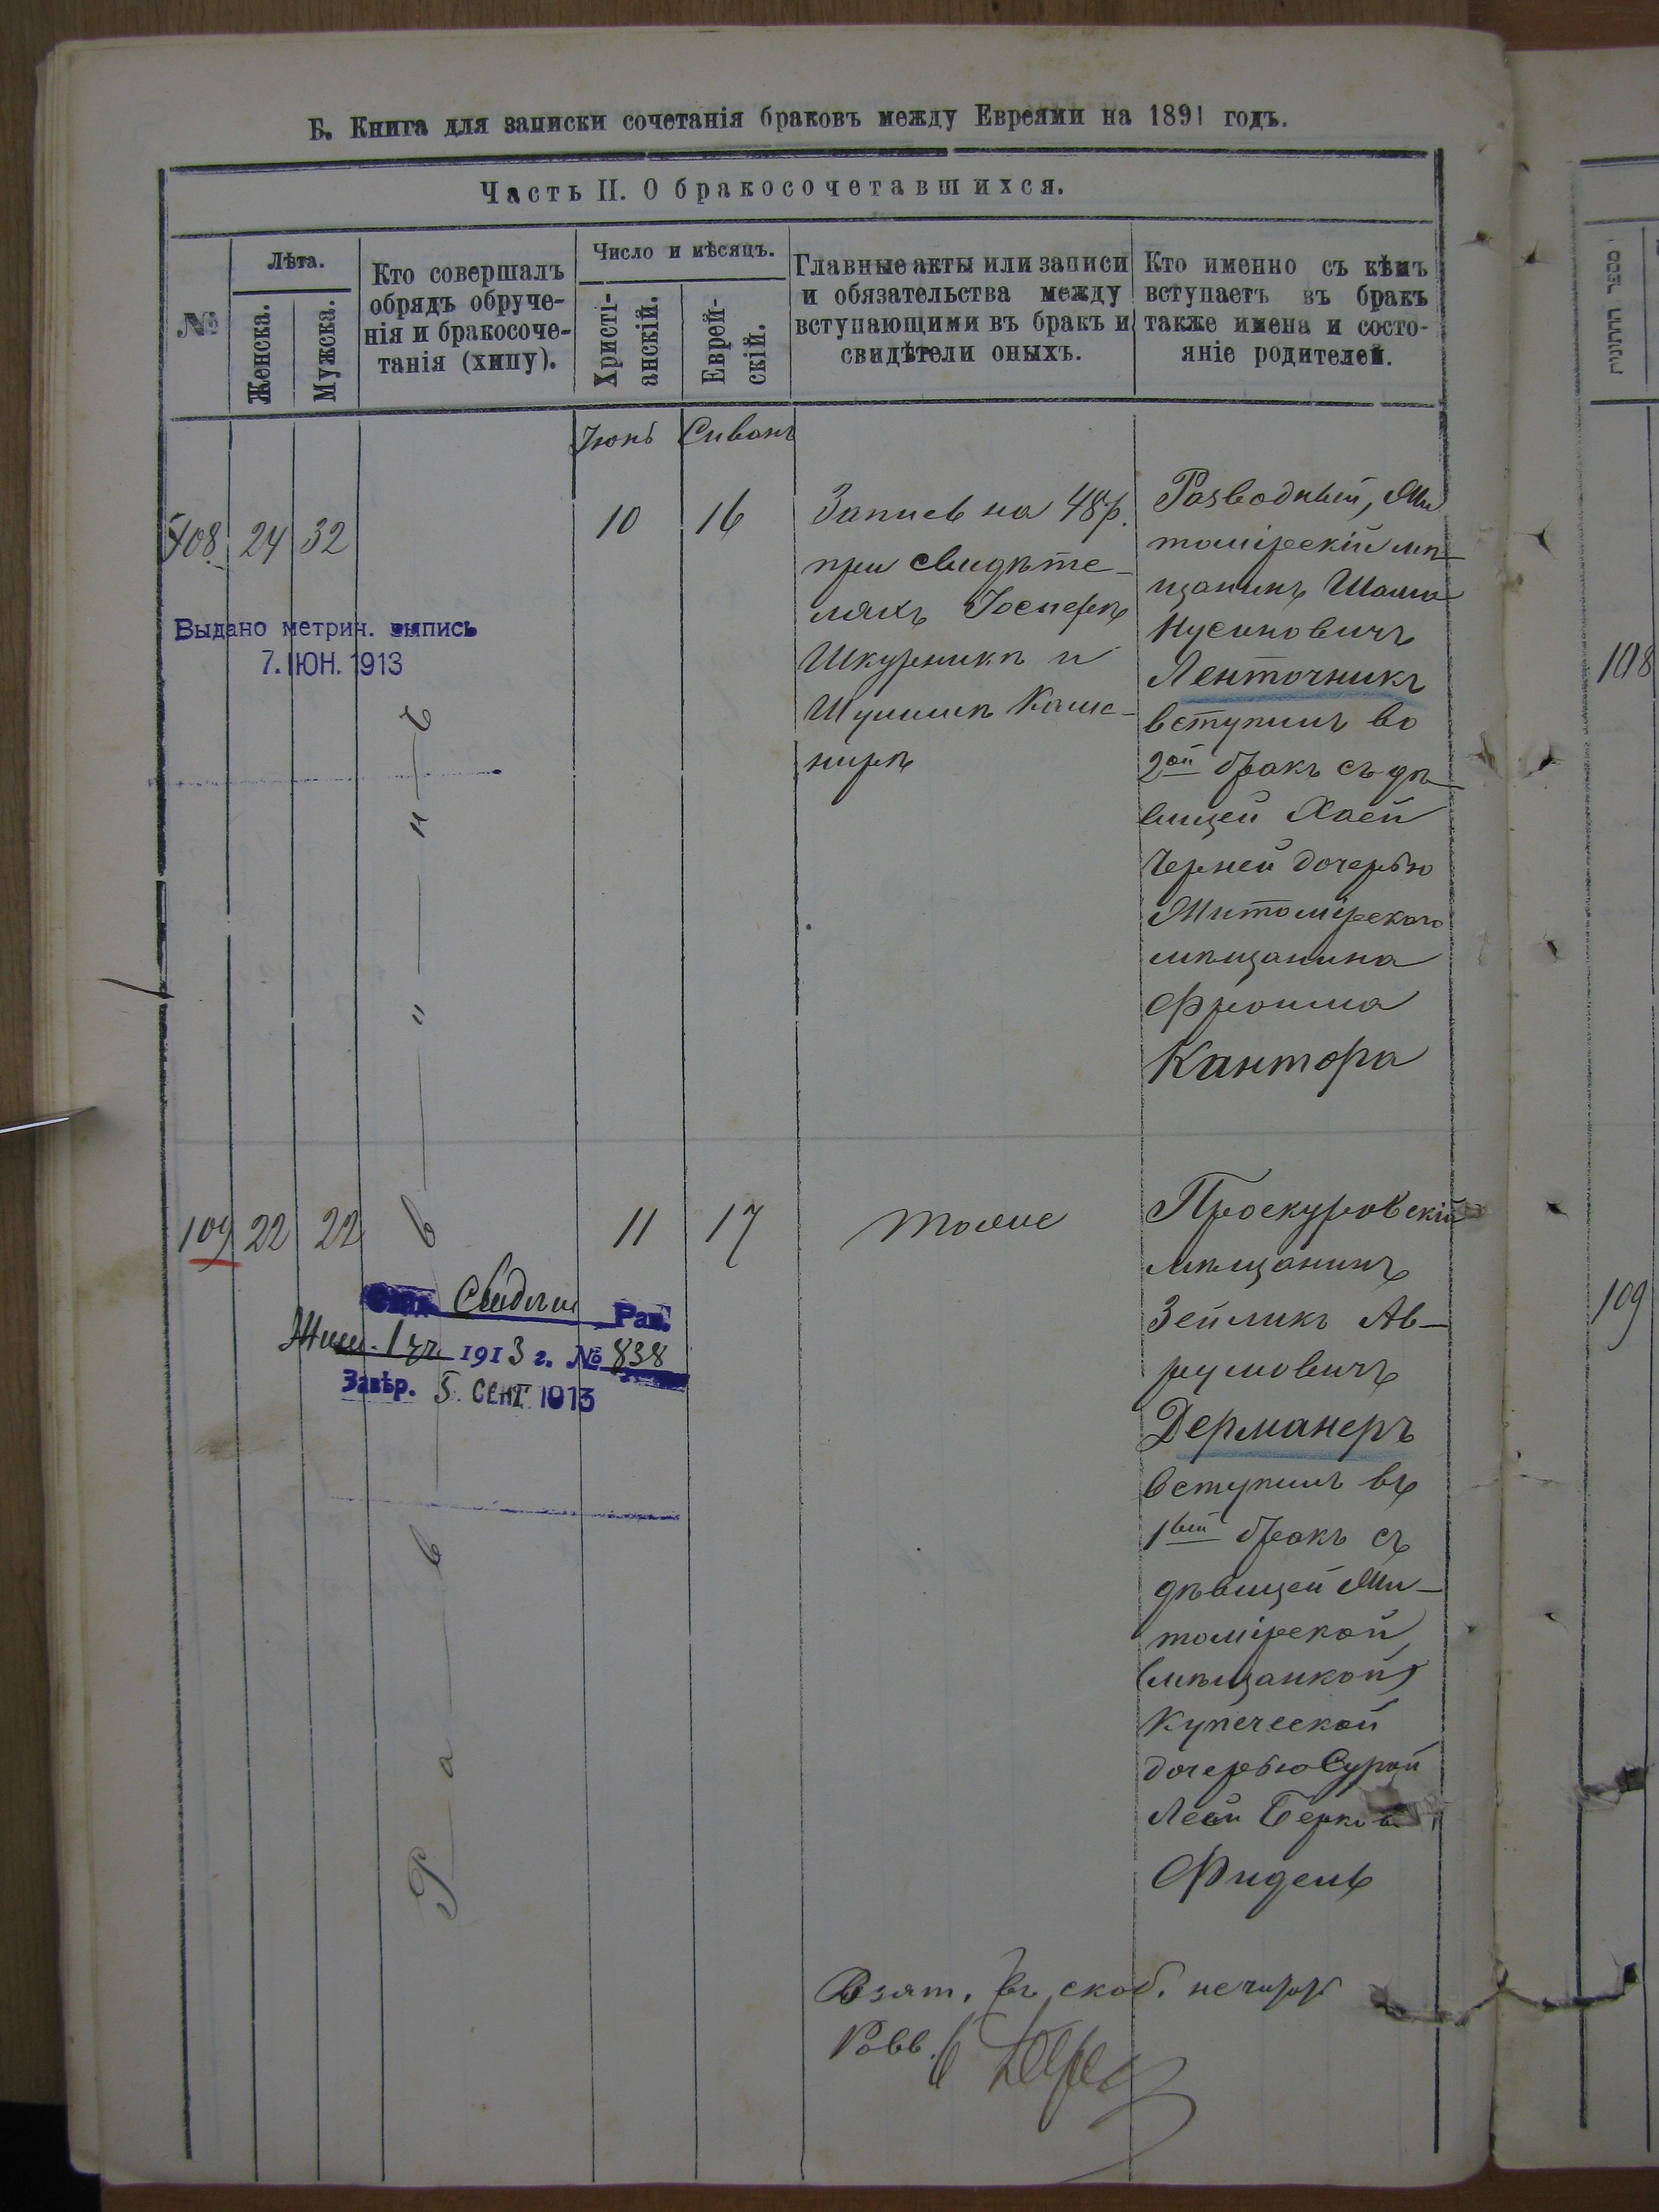 Б. Книга для записки сочетанія браковъ между Евреями на 1891 годъ.
Часть II. О бракосочетавшихся.
№
Лѣта.
Женска.
Мужска.
Кто совершалъ
обрядъ обруче-
нія и бракосоче-
танія (хипу).
Число и мѣсяцъ.
Христі-
анскій.
Еврей-
скій.
Главные акты или записи
и обязательства между
вступающими въ бракъ и
свидѣтели оныхъ.
Кто именно съ кѣмъ
вступаетъ въ бракъ
также имена и состо-
яніе родителей.
Іюнь Сиванъ
108 24 32 10 16
Запись на 48 р.
при свидѣте-
ляхъ Іосперѣ
Шкурникѣ и
Шулимѣ Каме-
нирѣ
Разводный, Жи
томірскій мѣ-
щанинъ Шама
Нусиновичъ
Ленточникъ
вступилъ во
2ой бракъ съ дѣ-
вицей Хаей
Черней дочерью
Житомірскаго
мѣщанина
Фроима
Кантора
Выдано метрич. выпись
7. ІЮН. 1913
Раввинъ
109 22 22 11 17
тоже
Проскуровскій
мѣщанинъ
Зейликъ Ав-
румовичъ
Дерманеръ
вступилъ въ
1вый бракъ съ
дѣвицей Жи-
томірской
(мѣщанкой)
Купеческой
дочерью Сурой
Леей Берков
Фидель
Рав.
1913 г. № 838
Завѣр. 5. СЕНТ. 1913
Взят. въ скоб. не чит
Равв.
108
109